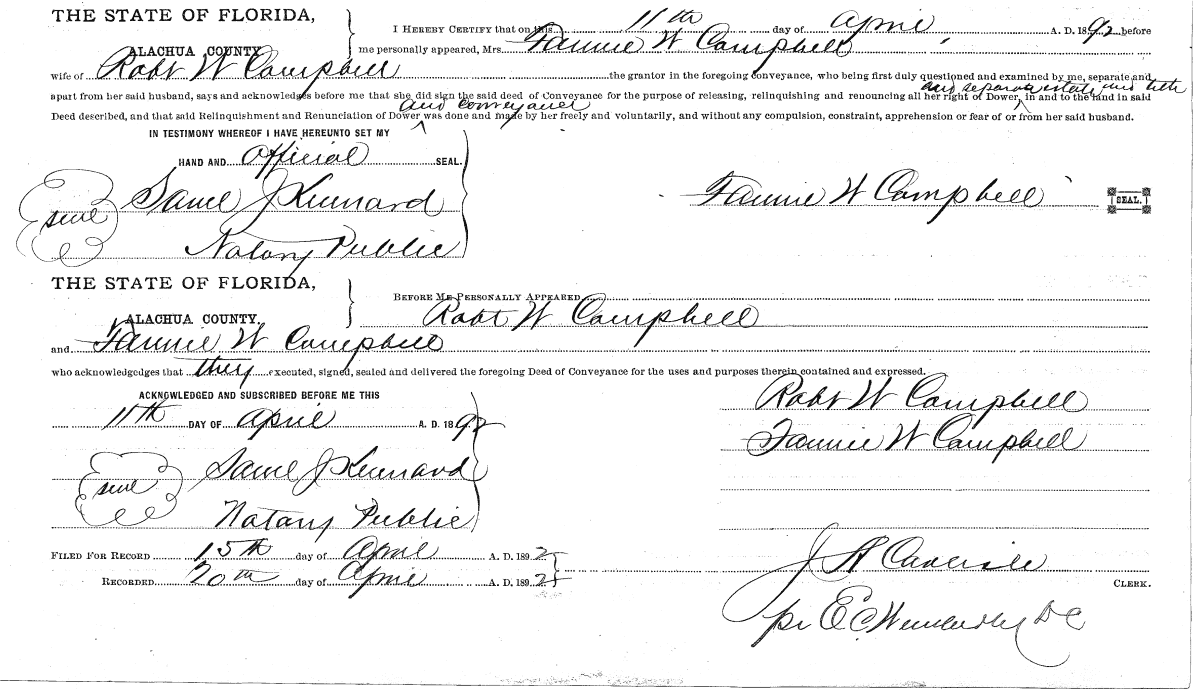 THE STATE OF FLORIDA,
ALACHUA COUNTY
I HEREBY CERTIFY that on this 11th day of April A. D. 1892 before
me personally appeared, Mrs. Fannie W Campbell
wife of Robt W Campbell the grantor in the foregoing conveyance, who being first duly questioned and examined by me, separate and
and separate estate and title
apart from her said husband, says and acknowledges before me that she did sign the said deed of Conveyance for the purpose of releasing, relinquishing and renouncing all her right of Dower, in and to the land in said
and conveyance
Deed described, and that said Relinquishment and Renunciation of Dower was done and made by her freely and voluntarily, and without any compulsion, constraint, apprehension or fear of or from her said husband.
IN TESTIMONY WHEREOF I HAVE HEREUNTO SET MY
HAND AND Official SEAL.
Saml J Kennard
seal
Notary Public
Fannie W Campbell SEAL.
THE STATE OF FLORIDA,
ALACHUA COUNTY,
BEFORE ME PERSONALLY APPEARED
Robt W Campbell
and Fannie W Campbell
who acknowledgedges that they executed, signed, sealed and delivered the foregoing Deed of Conveyance for the uses and purposes therein contained and expressed.
ACKNOWLEDGED AND SUBSCRIBED BEFORE ME THIS
11th DAY OF April A. D. 1892
Saml J Kennard
seal
Notary Public
Robt W Campbell
Fannie W Campbell
FILED FOR RECORD 15th day of April A. D. 1892
RECORDED 20th day of April A. D. 1892
J A Carlisle CLERK.
pr E C DC